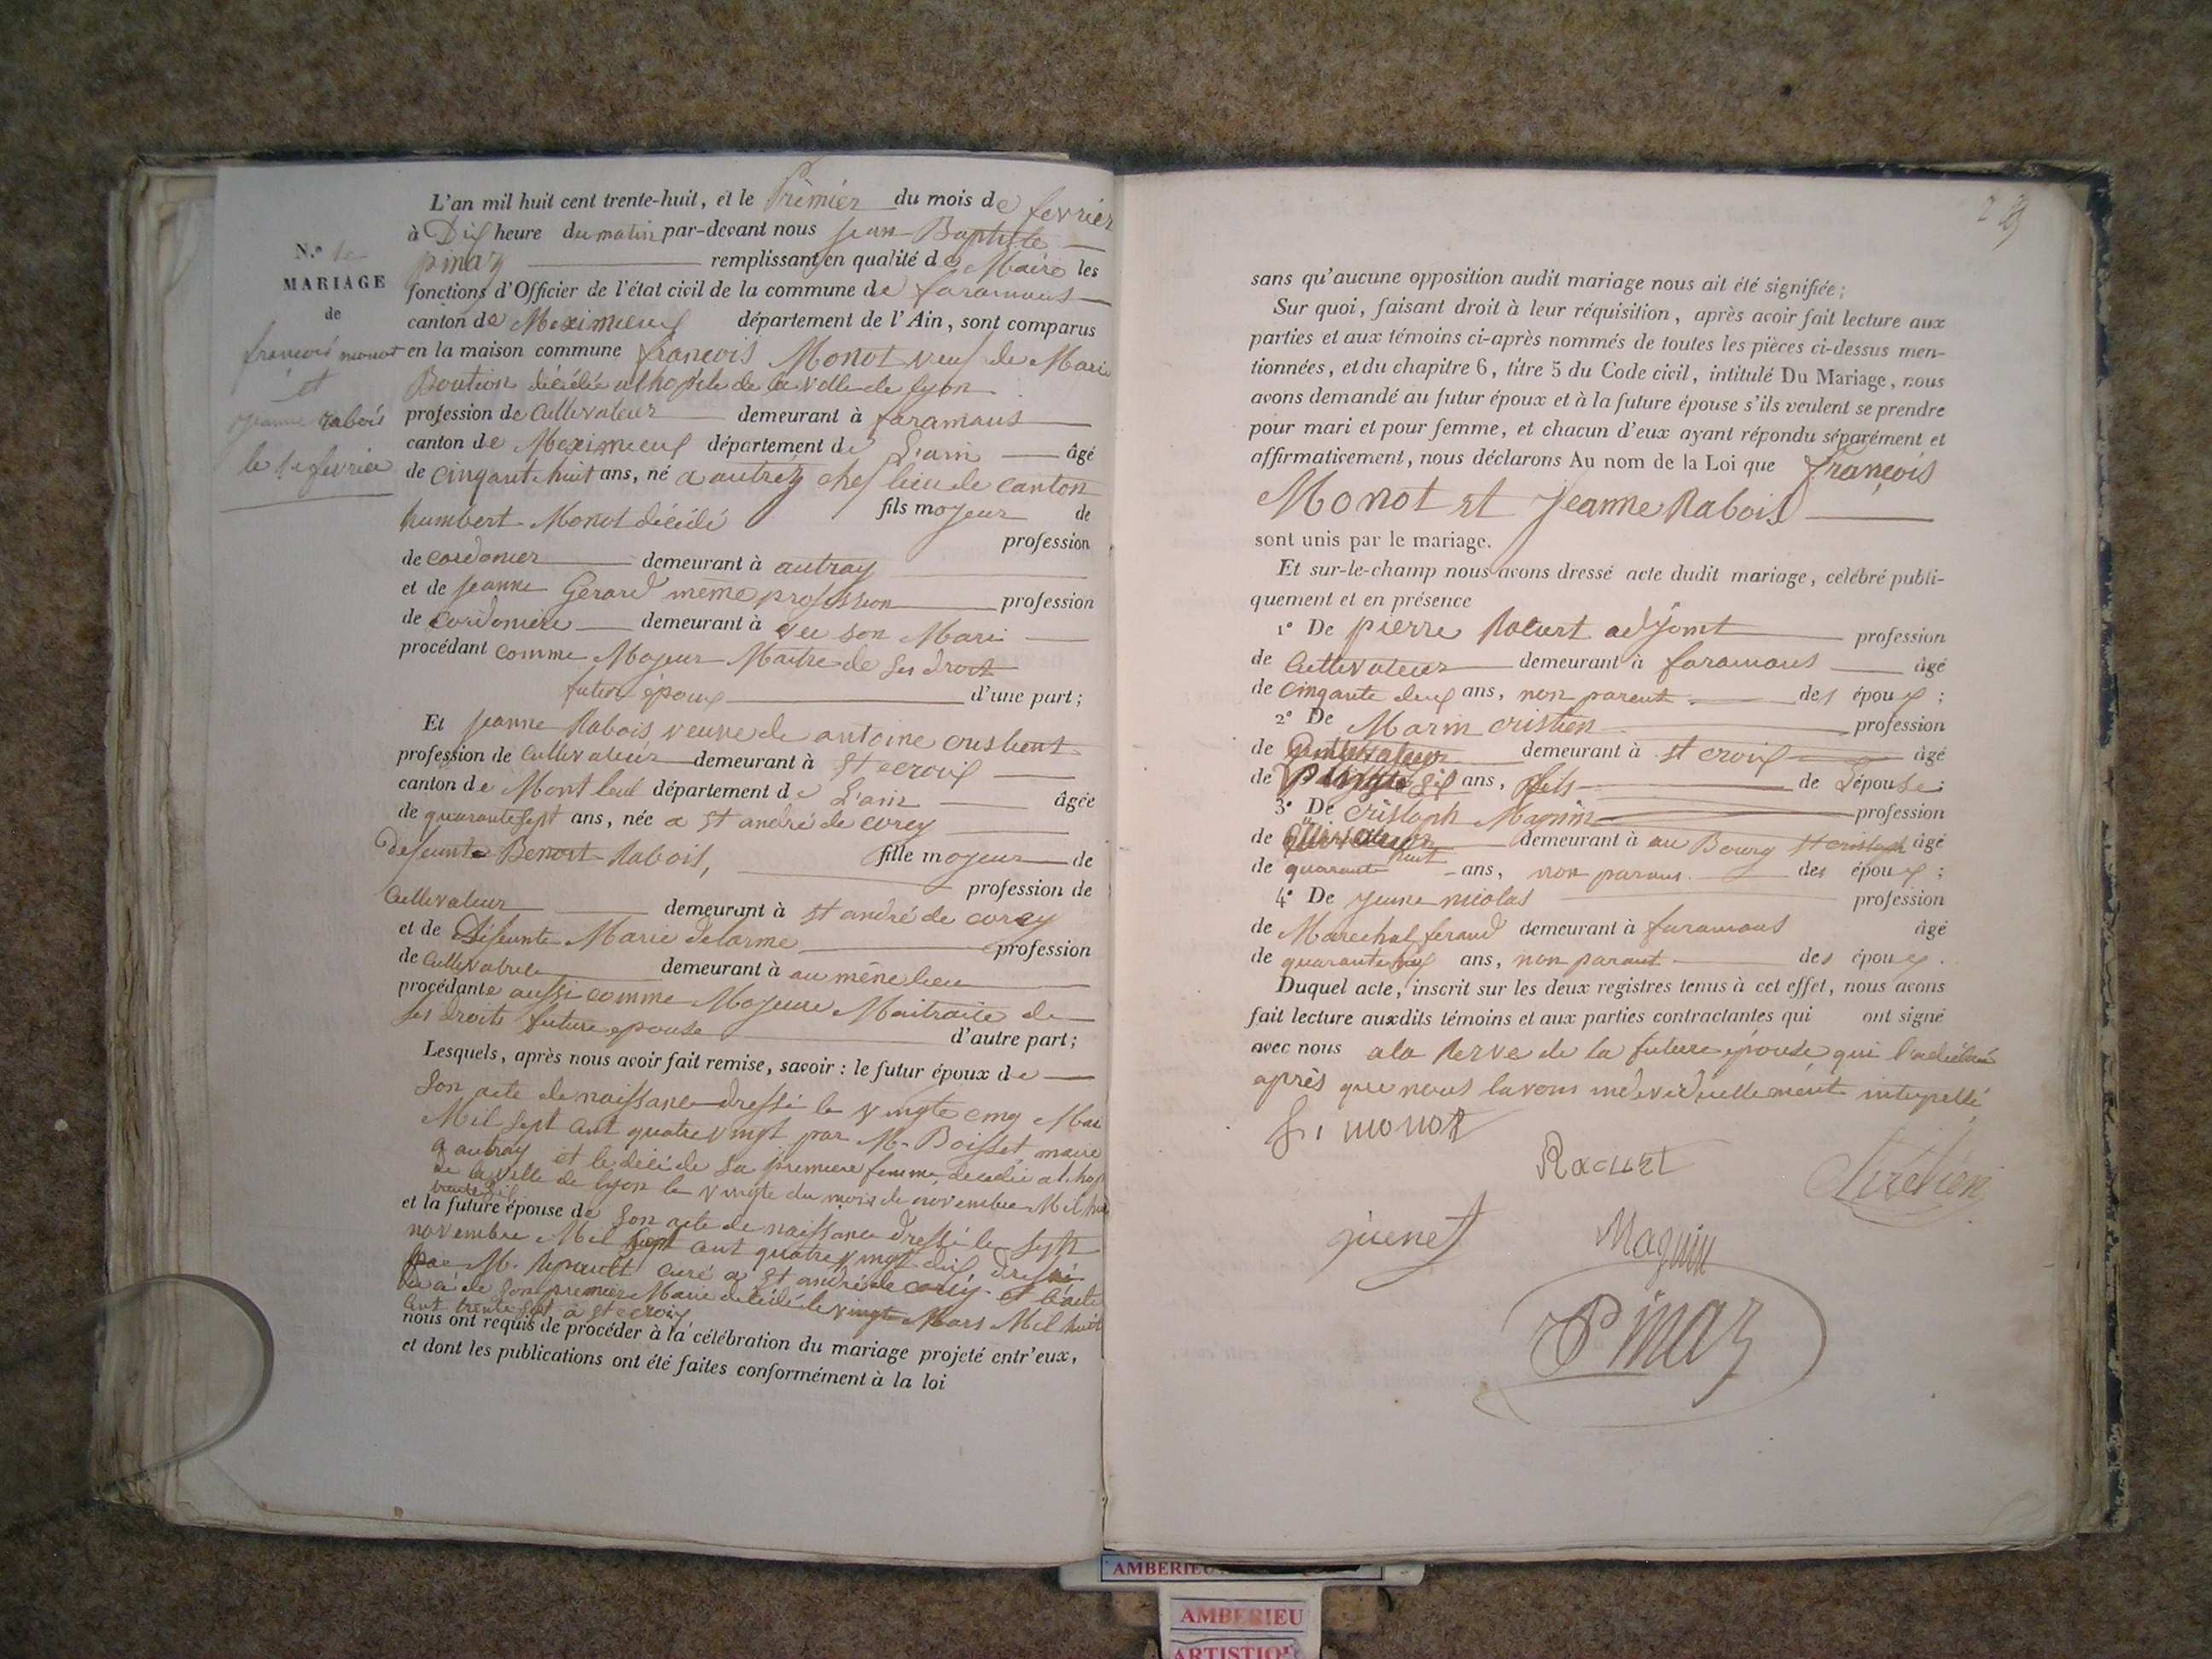 N.º 1e
MARIAGE
de
françois monot
et
jeanne rabois
le 1e fevrier
L'an mil huit cent trente-huit, et le Prèmier du mois de fevrier
à Dix heure du matin par-devant nous jean Baptiste
pinaz remplissant en qualité de Maire les
fonctions d'Officier de l'état civil de la commune de faramans
canton de Meximieux département de l'Ain, sont comparus
en la maison commune françois Monot veuf de Marie
Boution décédée a lhopitale de la ville de lyon
profession de Cultivateur demeurant à faramans
canton de Meximieux département de L'ain âgé
de cinqant huit ans, né a autréy chef lieu de canton
humbert Monot décédé fils majeur de
profession
de cordonier demeurant à autray
et de jeanne Gérard même profession profession
de cordoniere demeurant à son Mari
procédant comme Majeur Maitre de ses droit
futur époux d'une part;
Et jeanne Rabois veuve de antoine cristient
profession de Cultivateur demeurant à st ecroix
canton de Mont luel département de L'ain âgée
de quarante sept ans, née a st andré de corcy
defeunte Benoit Rabois, fille majeur de
profession de
Cultivateur demeurant à st andré de corcy
et de Défeunte Marie delorme profession
de Cultivatrice demeurant à au même lieu
procédante aussi comme Majeure Maitraite de
ses droits future epouse d'autre part;
Lesquels, après nous avoir fait remise, savoir: le futur époux de
son acte de naissance dressé le vingte cinq Mai
Mil sept cent quatre vingt par M. Boisset maire
a autray et le décé de sa premiere femme, decedée a l. hop
de la ville de lyon le vingte du mois de novembre Mil hui
trente six
et la future épouse de son acte de naissance dressé le sept
novembre Mil sept cent quatre vingt dix dressé
par M. curé a st andré de corcy et l'acte
de son premier Marie decédé le vingte Mars Mil huit
cent trente sept a st ecroix
nous ont requis de procéder à la célébration du mariage projeté entr'eux,
et dont les publications ont été faites conformément à la loi
sans qu'aucune opposition audit mariage nous ait été signifiée;
Sur quoi, faisant droit à leur réquisition, après avoir fait lecture aux
parties et aux témoins ci-après nommés de toutes les pièces ci-dessus men-
tionnées, et du chapitre 6, titre 5 du Code civil, intitulé Du Mariage, nous
avons demandé au futur époux et à la future épouse s'ils veulent se prendre
pour mari et pour femme, et chacun d'eux ayant répondu séparément et
affirmativement, nous déclarons Au nom de la Loi que françois
Monot et Jeanne Rabois
sont unis par le mariage.
Et sur-le-champ nous avons dressé acte dudit mariage, célébré publi-
quement et en présence
1º De pierre Racurt adjoint profession
de Cultivateur demeurant à faramans âgé
de cinqante deux ans, non parent des époux;
2º De Marin cristien profession
de Cultivateur demeurant à st croix âgé
de vingte six ans, fils de L'épouse;
3º De cristoph Magnin profession
de Cultivateur demeurant à au Bourg st cristoph âgé
de quarante huit ans, non parans des époux;
4º De jeune nicolas profession
de Marechal ferand demeurant à faramans âgé
de quarante ans, non parant des époux.
Duquel acte, inscrit sur les deux registres tenus à cet effet, nous avons
fait lecture auxdits témoins et aux parties contractantes qui ont signé
avec nous a la Rerve de la future épouse qui l'adéclaré
après que nous lavons indeviduellement interpellé
f. monot
Racurt
Chrétien
Magnin
Pinaz
AMBERIEU
AMBERIEU
ARTISTIQ